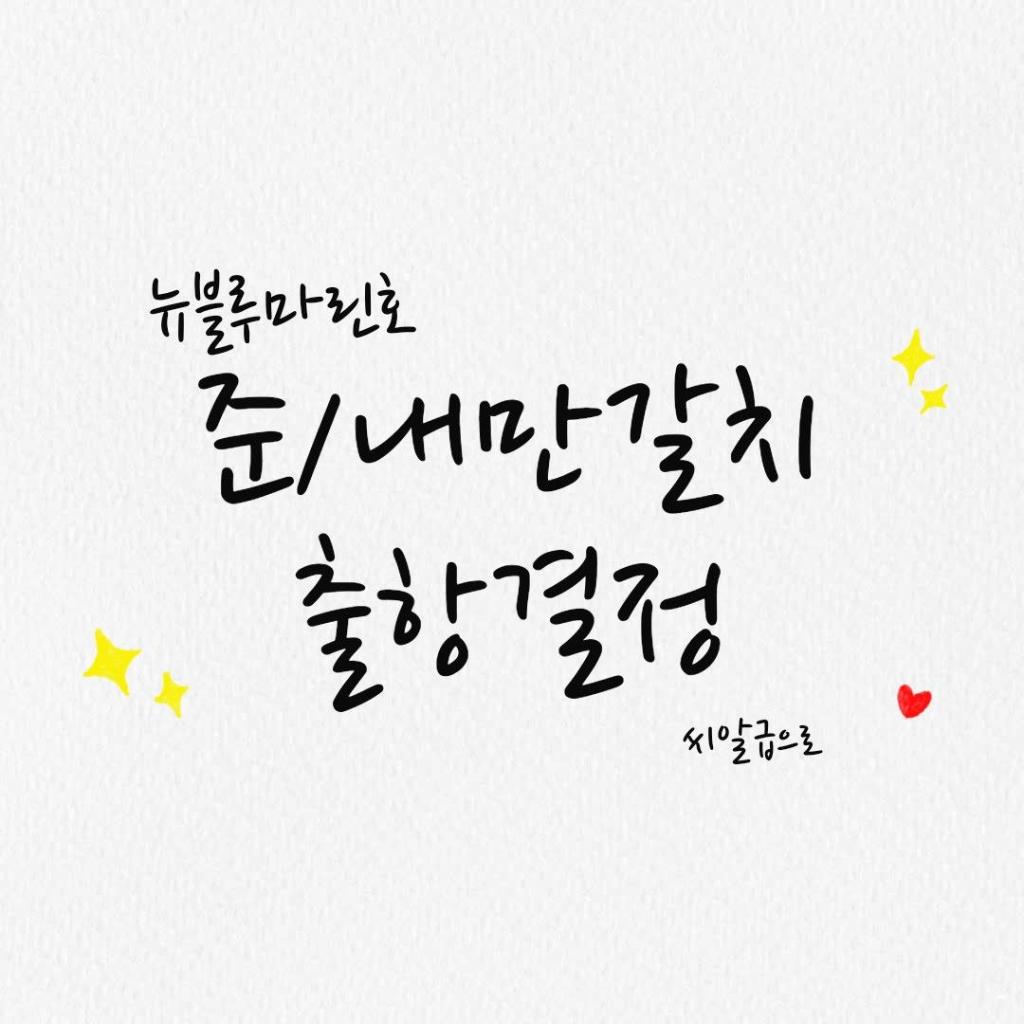 뉴블루마린호
준/내만갈치
출항결정
씨알급으로